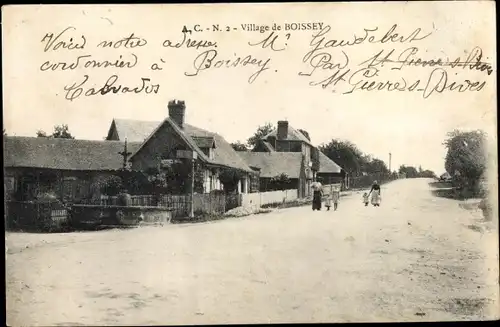 A. C. - N. 2 - Village de BOISSEY
Voici notre adresse.
Mr. Gaudebert
cordonnier à Boissey
Par St Pierre s Dives
St Pierres Dives
Calvados